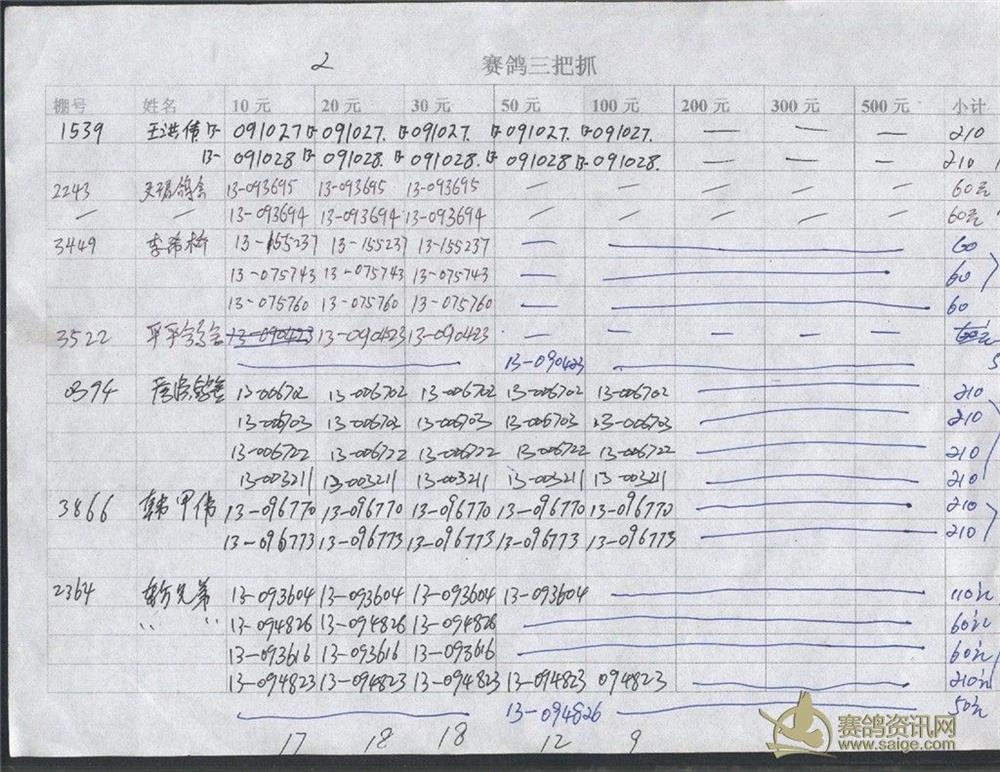 2 赛鸽三把抓
棚号 姓名 10元 20元 30元 50元 100元 200元 300元 500元 小计
1539 王洪伟 13-091027 13-091027. 13-091027. 13-091027. 13-091027. — — — 210
13-091028 13-091028. 13-091028. 13-091028 13-091028. — — — 210
2243 13-093695 13-093695 13-093695 — — — — — 60元
— — 13-093694 13-093694 13-093694 — — — — — 60元
3449 李希桥 13-155237 13-155237 13-155237 — — 60
13-075743 13-075743 13-075743 — — 60
13-075760 13-075760 13-075760 — — 60
3522 平平鸽舍 13-090423 13-090423 13-090423 — — — — —
— 13-090423 — 5
0394 13-006702 13-006702 13-006702 13-006702 13-006702 — 210
13-006703 13-006703 13-006703 13-006703 13-006703 — 210
13-006722 13-006722 13-006722 13-006722 13-006722 — 210
13-003211 13-003211 13-003211 13-003211 13-003211 — 210
3866 韩甲伟 13-096770 13-096770 13-096770 13-096770 13-096770 — 210
13-096773 13-096773 13-096773 13-096773 13-096773 — 210
2364 兄弟 13-093604 13-093604 13-093604 13-093604 — 110元
〃 〃 13-094826 13-094826 13-094826 — 60元
13-093616 13-093616 13-093616 — 60元
13-094823 13-094823 13-094823 13-094823 094823 — 210元
— 13-094826 — 50元
17 18 18 12 9
赛鸽资讯网
www.saige.com